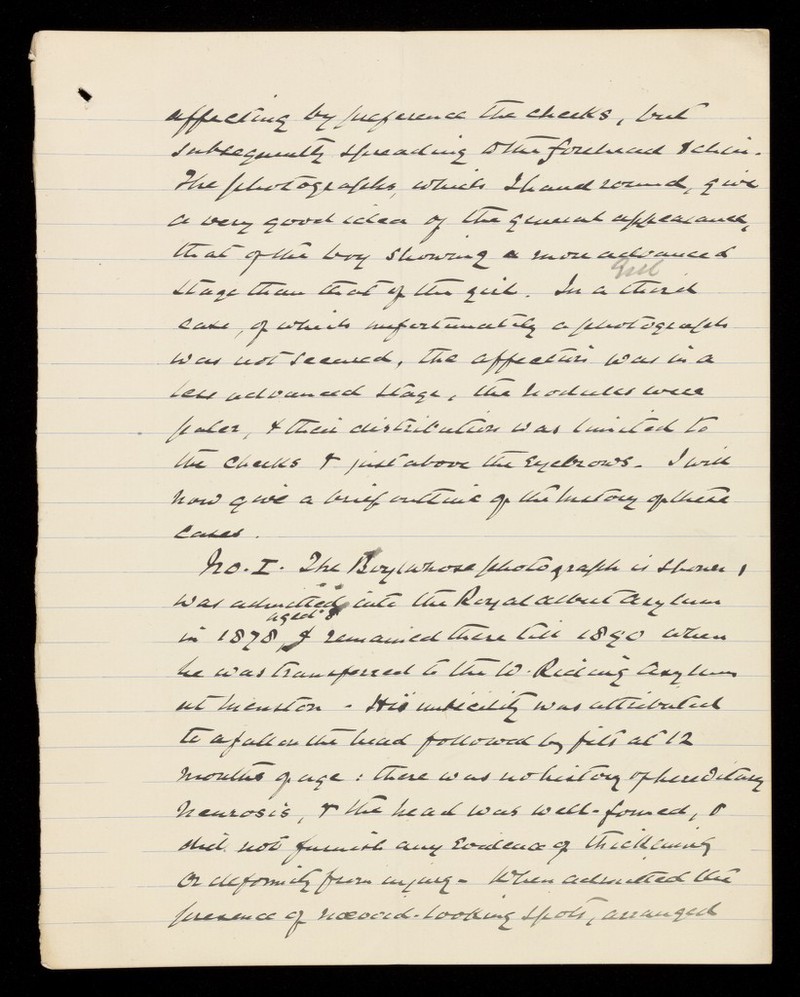 affecting by preference the cheeks, but
subsequently spreading to the forehead & chin.
The photographs, which I hand round, give
a very good idea of the general appearance,
that of the boy showing a more advanced
Girl
stage than that of the girl. In a third
case, of which unfortunately a photograph
was not secured, the affection was in a
less advanced stage, the nodules were
paler, & their distribution was limited to
the cheeks & just above the eyebrows. I will
now give a brief outline of the history of these
cases.
No. I. The Boy whose photograph is shown,
was admitted into the Royal Albert Asylum
aged 8
in 1878, & remained there till 1890 when
he was transferred to the W. Riding Asylum
at Menston - His imbecility was attributed
to a fall on the head followed by fits at 12
months of age: there was no history of hereditary
neurosis, & the head was well-formed, &
did not furnish any evidence of thickening
or deformity from injury - When admitted the
presence of nævoid-looking spots, arranged